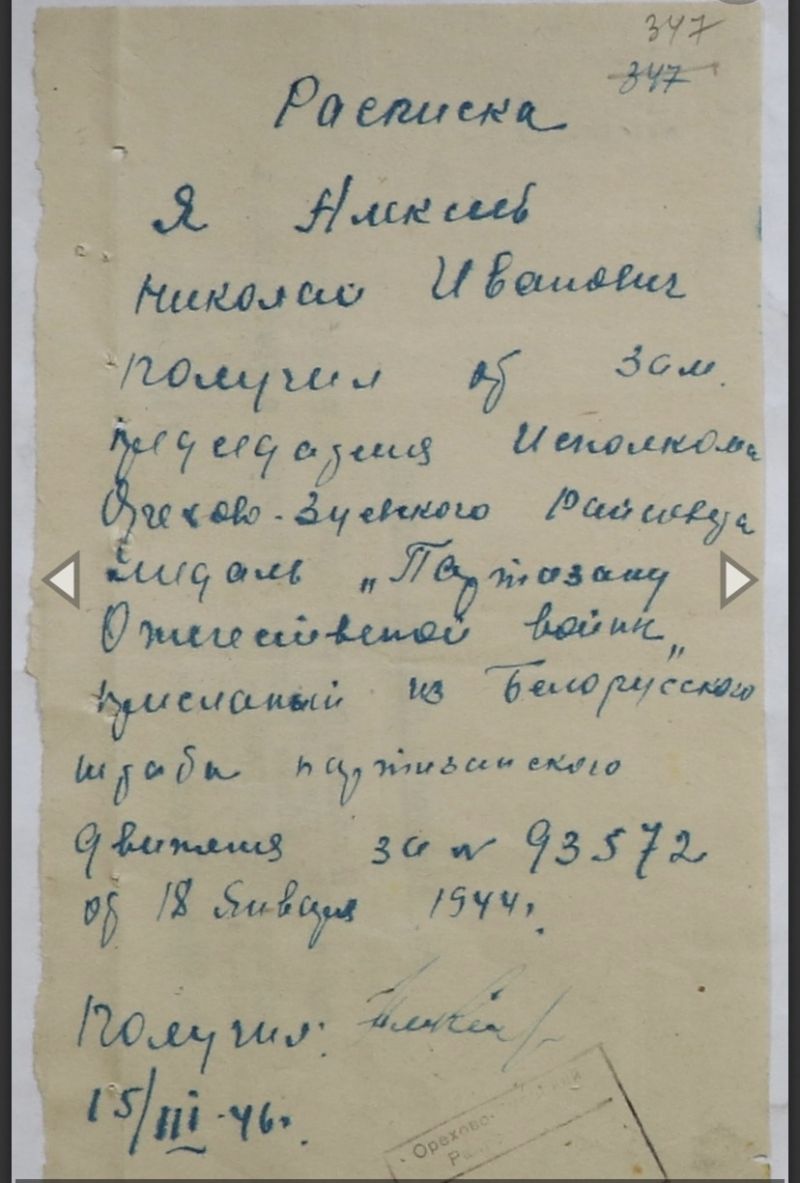 347
347
Расписка
Я
Николай Иванович
получил от зам.
председателя Исполкома
Орехово-Зуевского Райсовета
медаль „Партизану
Отечественой войны„
присланый из Белорусского
штаба партизанского
движения за № 93572
от 18 Января 1944г.
Получил:
15/III-46г.
Орехово-